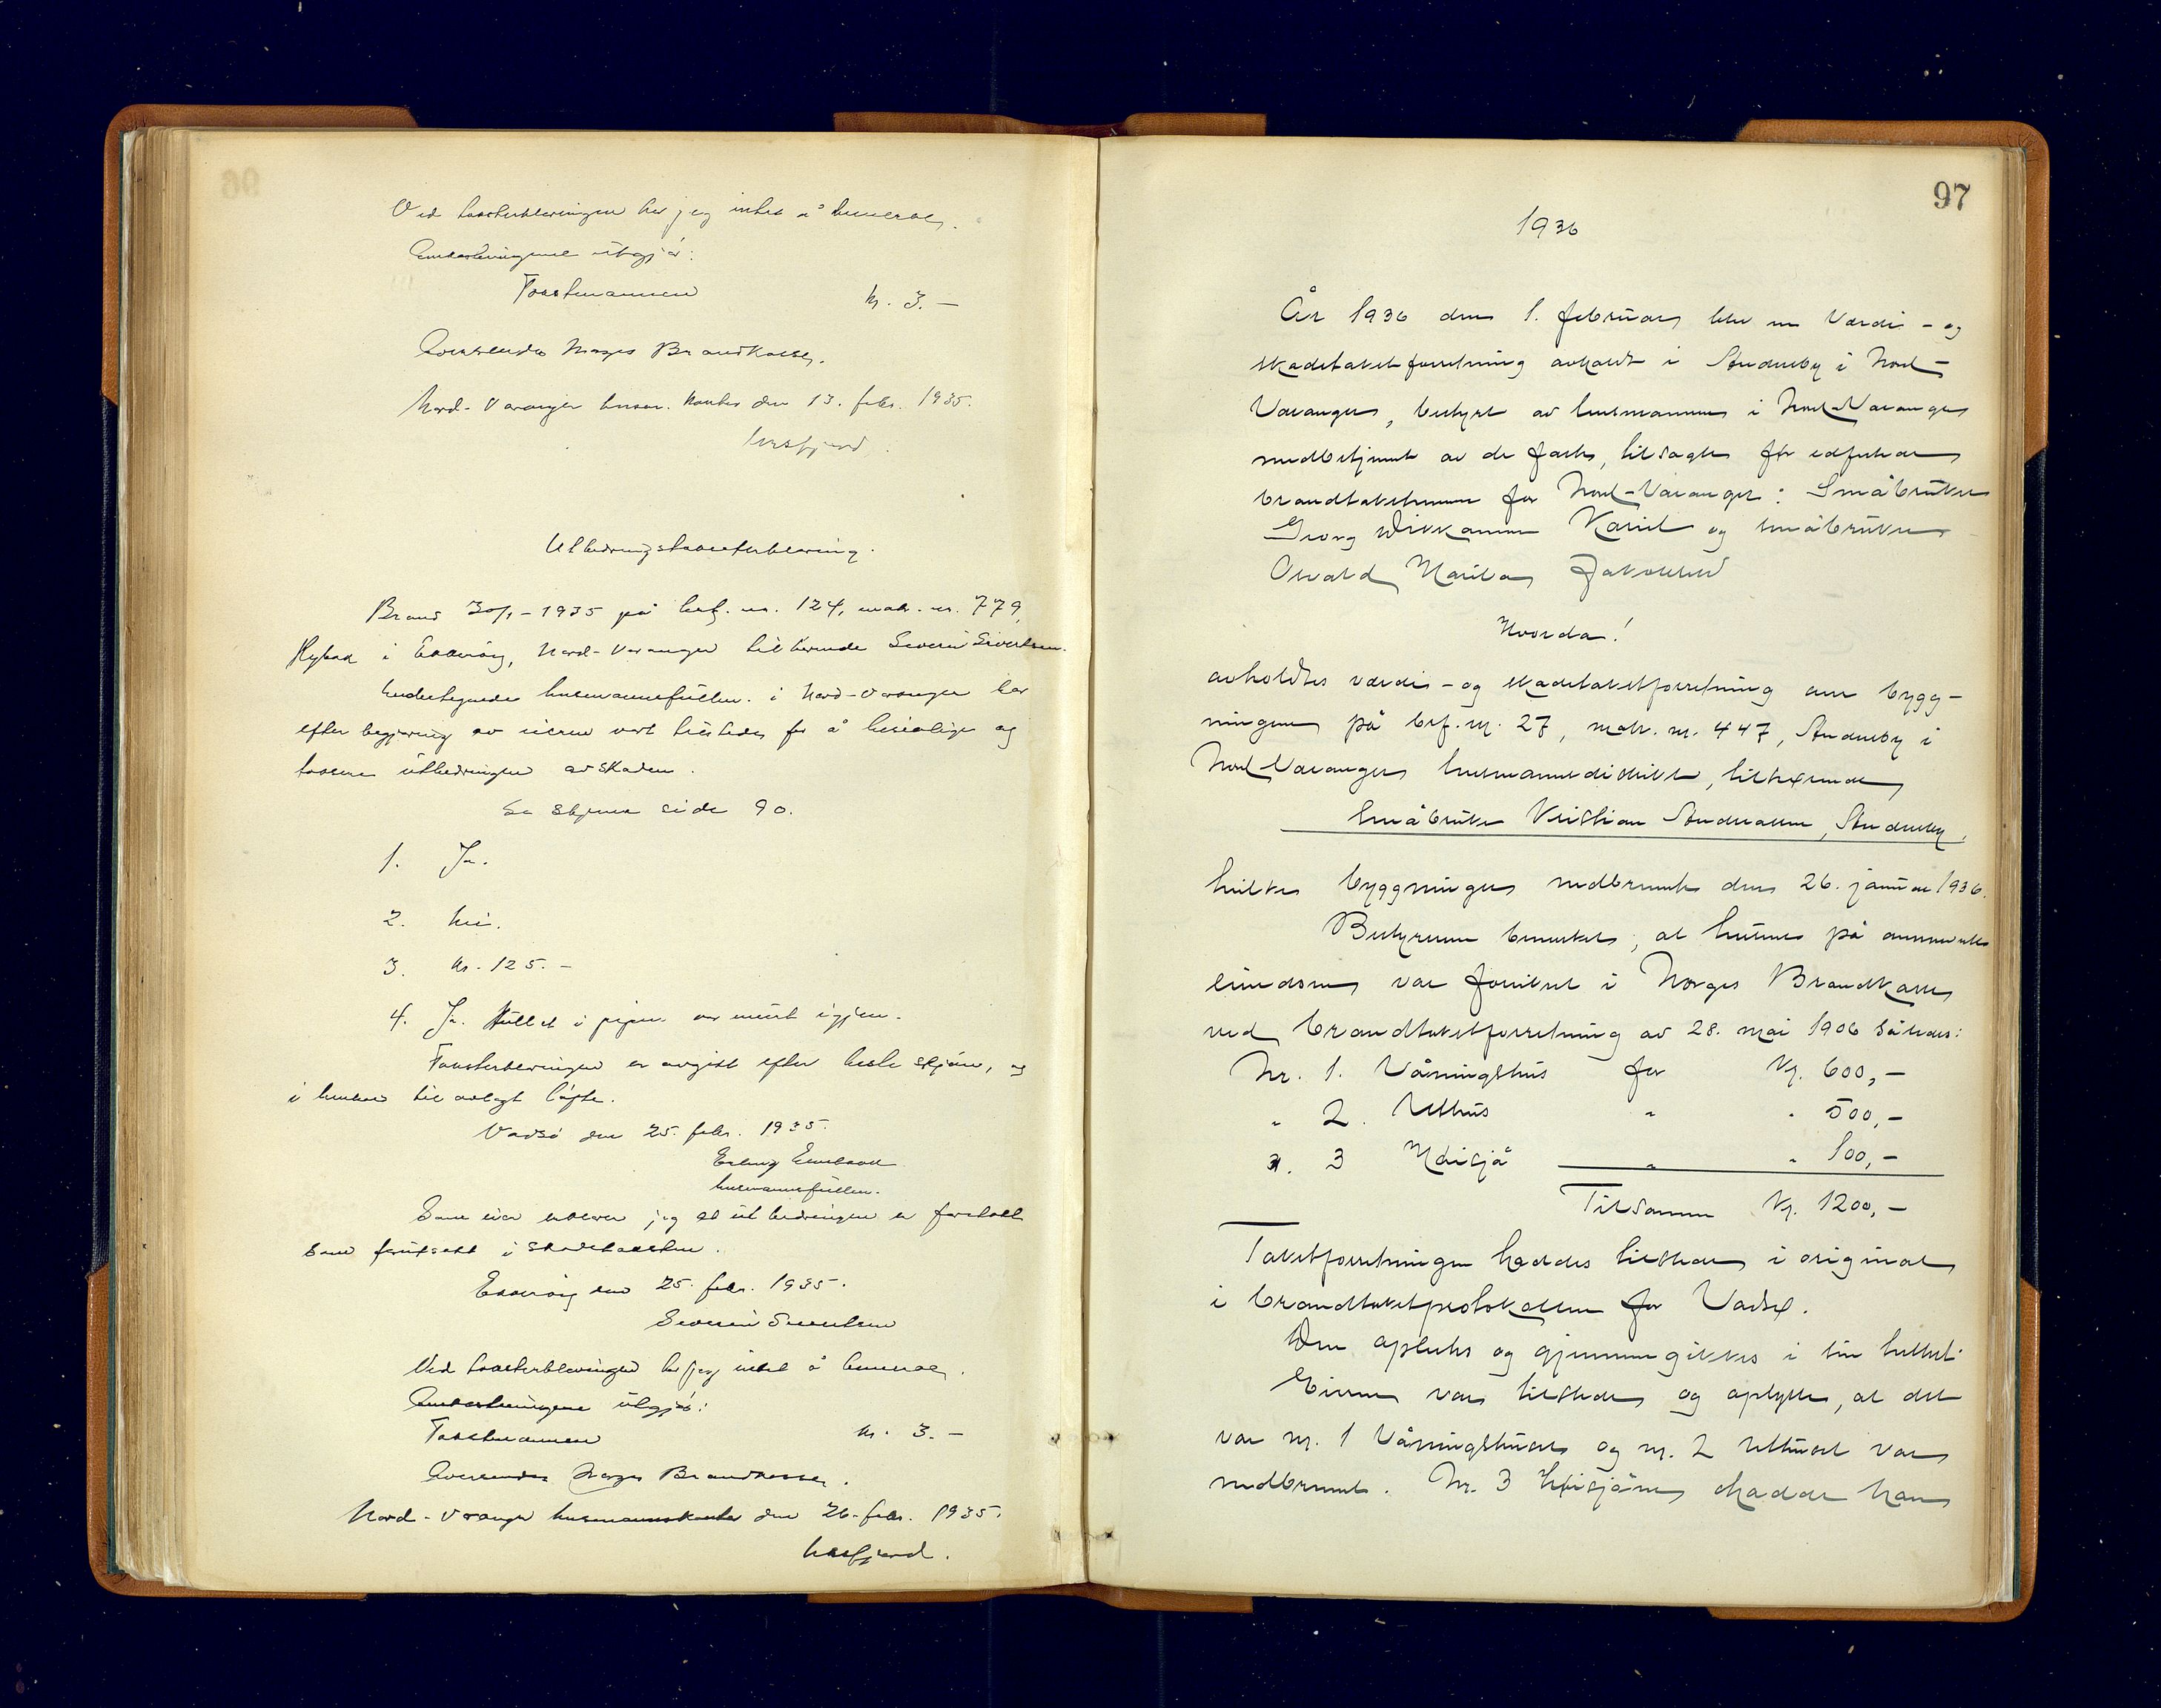 Ved taksterklæringen har jeg intet å bemerke.
Omkostningene utgjør:
Takstmannen kr. 3.-
Oversendes Norges Brandkasse.
Nord-Varanger lensm. kontor den 13. febr. 1935.
Utbedringstaksterklæring.
Brand 30/1-1935 på brf. nr. 124, matr. nr. 779,
i Ekkerøy, Nord-Varanger tilhørende Severin Sivertsen.
Undertegnede lensmannsfullm. i Nord-Varanger har
efter begjæring av eieren vært tilstede for å besiktige og
taksere utbedringen av skaden.
Se skjema side 90.
1. Ja.
2. Nei.
3. kr. 125.-
4. Ja. Hullet i pipen var murt igjen.
Taksterklæringen er avgitt efter beste skjønn, og
i henhold til avlagt løfte.
Vadsø den 25. febr. 1935.
Erling
lensmannsfullm.
Som eier erklærer jeg at utbedringen er foretatt
som forutsatt i skadetaksten.
Ekkerøy den 25. febr. 1935.
Severin Sivertsen
Ved taksterklæringen har jeg intet å bemerke.
Omkostningene utgjør:
Takstmannen kr. 3.-
Oversendes Norges Brandkasse.
Nord-Varanger lensmannskontor den 26. febr. 1935.
97
1936
År 1936 den 1. februar blev en verdi- og
skadetakstforretning avholdt i Andersby i Nord-
Varanger, bestyrt av lensmannen i Nord-Varanger
medbetjent av de faste, tilsagte før edfestede
brandtakstmenn for Nord-Varanger: Småbruker
Georg Karlsen og småbruker
Osvald Jakobsen
Hvorda!
avholdtes verdi- og skadetakstforretning over bygg-
ningene på brf. nr. 27, matr. nr. 447, Andersby i
Nord-Varanger lensmannsdistrikt, tilhørende
Småbruker Kristian Andreassen, Andersby,
hvilke byggninger nedbrente den 26. januar 1936.
Bestyreren bemerket, at husene på ommeldte
eiendom var forsikret i Norges Brandkasse
ved brandtakstforretning av 28. mai 1906 således:
Nr. 1. Våningshus for kr. 600,-
" 2. Uthus " " 500,-
". 3 Høisjå " " 100,-
Tilsammen kr. 1200,-
Takstforretningen haddes tilstede i original
i brandtakstprotokollen for Vadsø.
Den oplestes og gjennemgikkes i sin helhet.
Eieren var tilstede og oplyste, at det
var nr. 1 Våningshuset og nr. 2 Uthuset var
nedbrent. Nr. 3 Høisjåen hadde han